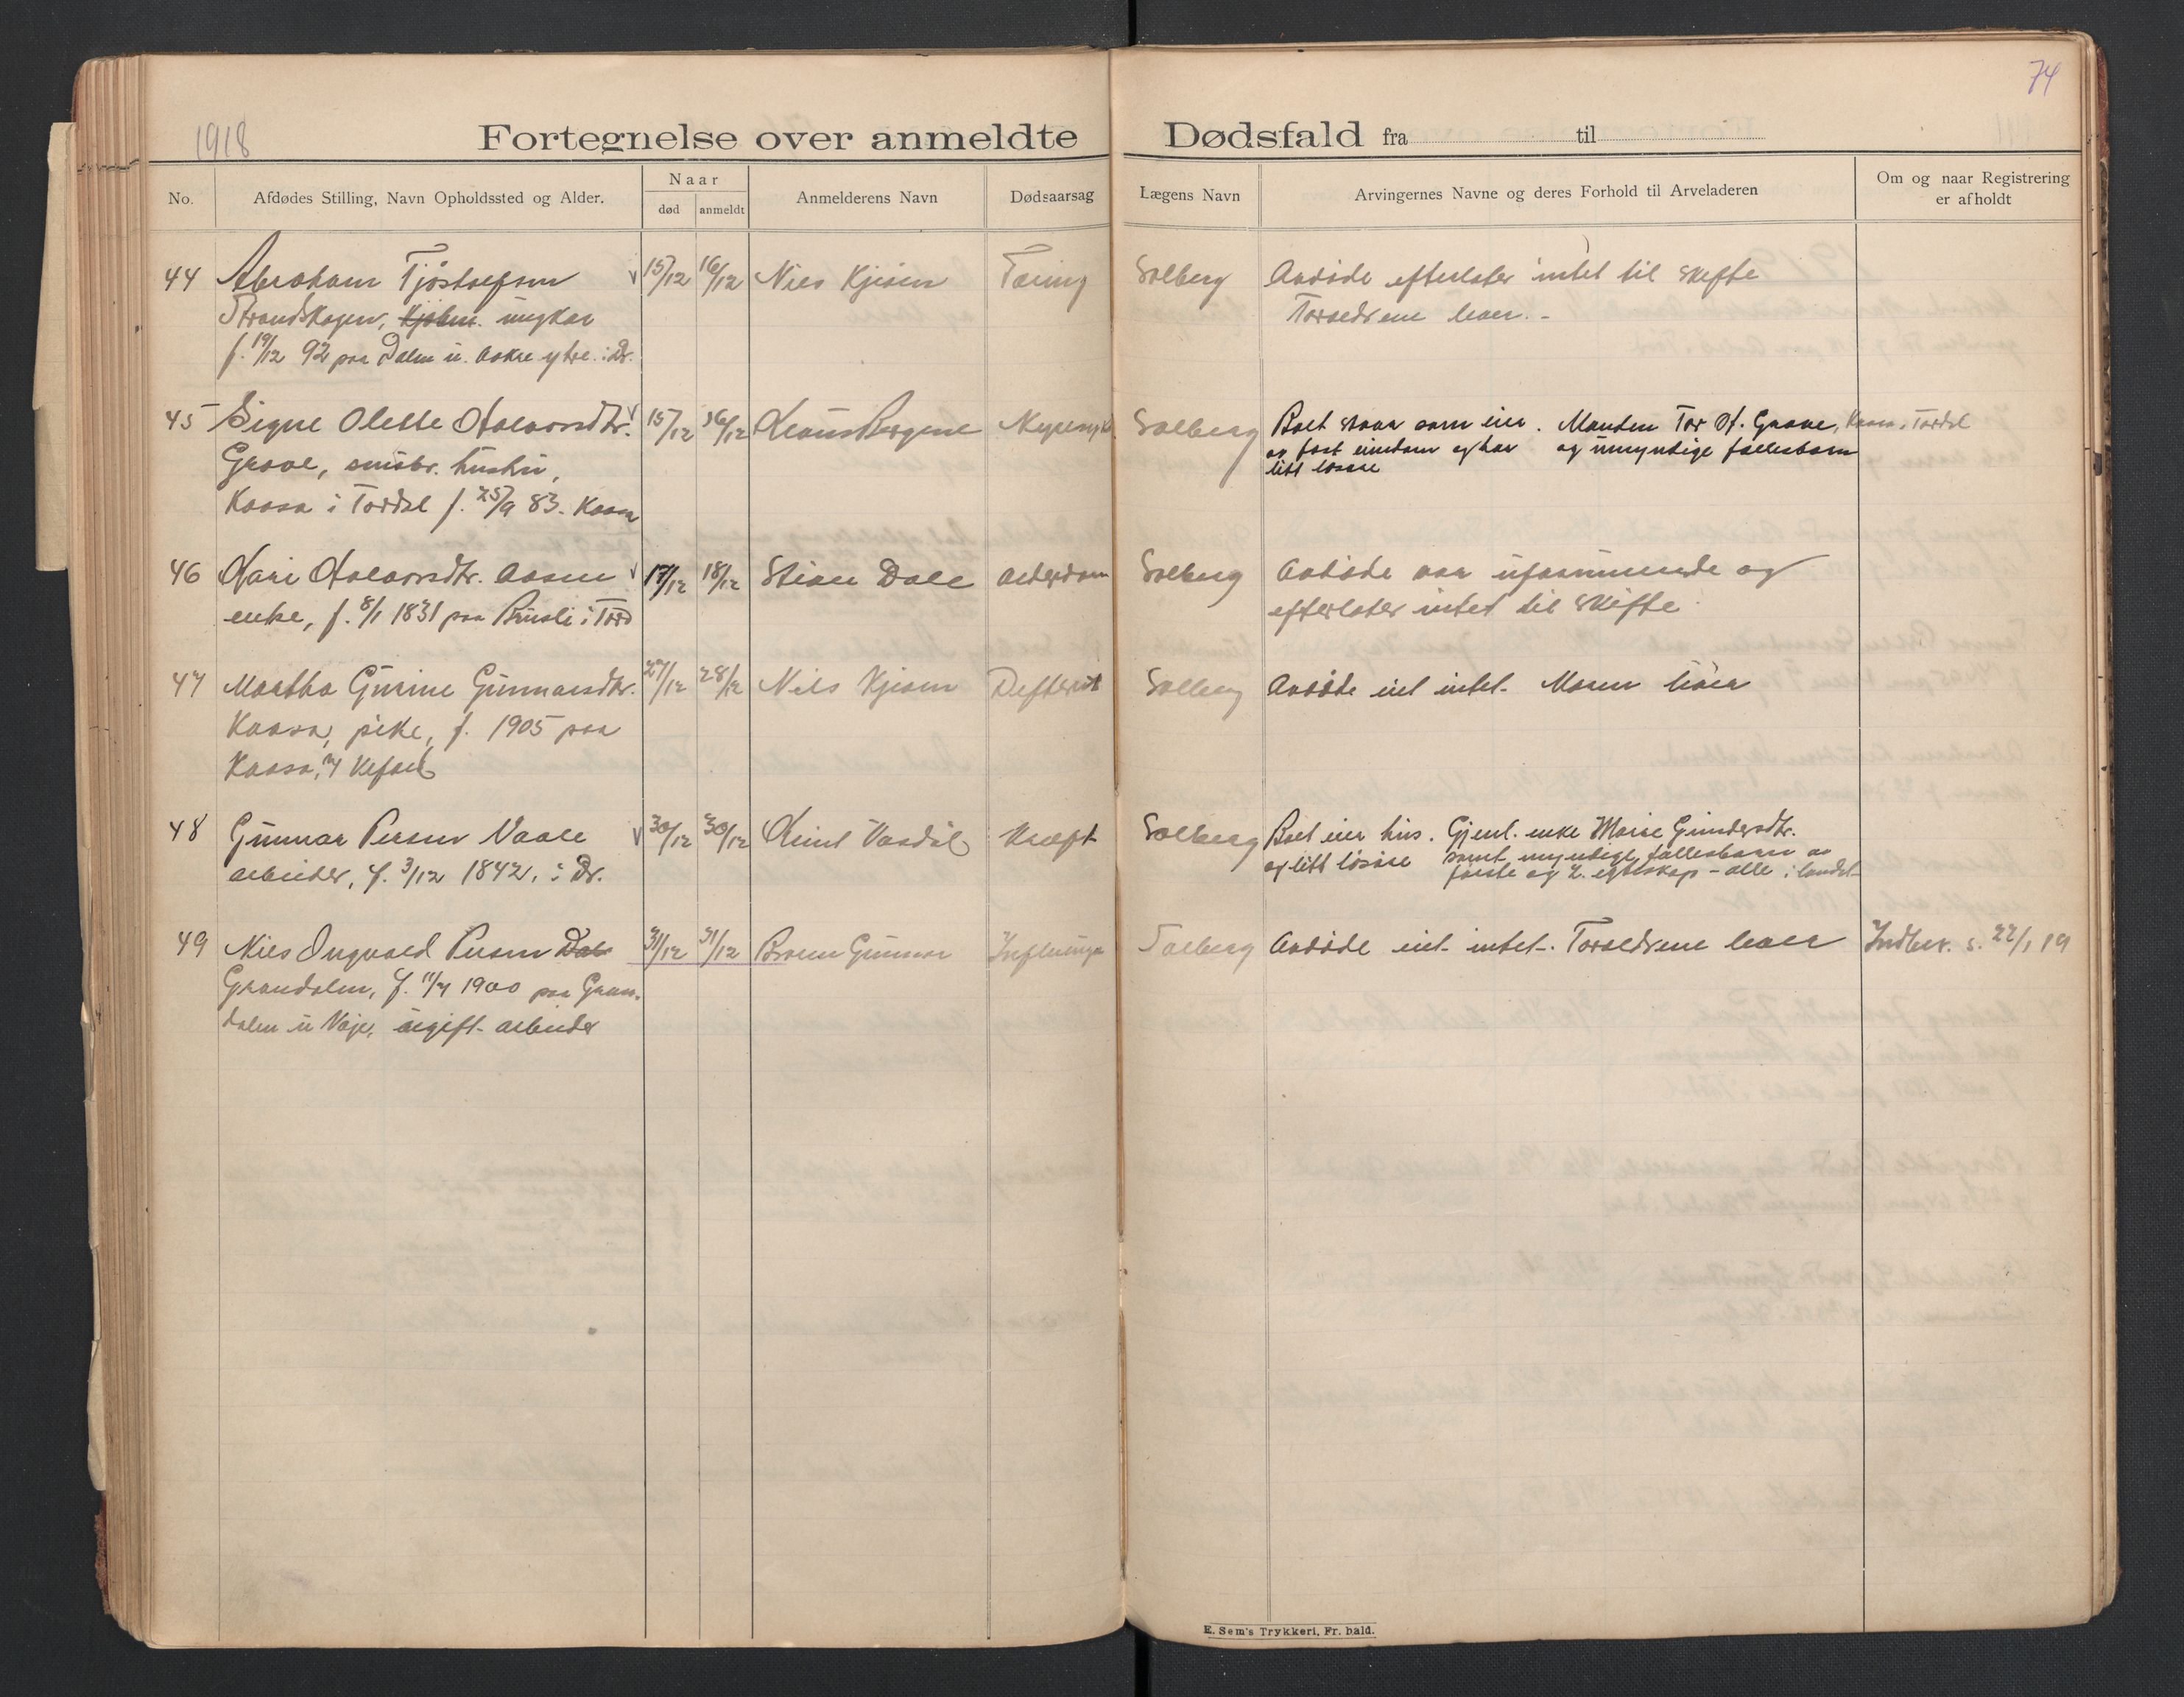 74
1918
Fortegnelse over anmeldte Dødsfald fra til
No.
Afdødes Stilling, Navn Opholdssted og Alder.
Naar
død
anmeldt
Anmelderens Navn
Dødsaarsag
Lægens Navn
Arvingernes Navne og deres Forhold til Arveladeren
Om og naar Registrering
er afholdt
44 Abraham Tjöstolfsen 15/12 16/12 Nils Kjiosen Tæring Solberg Avdøde efterlater intet til skifte
Strandskogen, ungkar Foreldrene lever.-
f. 19/12 92 paa Dalen u. Aakre ytre i Dr.
45 Signe Olette Halvorsdtr. 15/12 16/12 Bergene Solberg Boet staar som eier. Manden Tor H. Graave, Kaasa i Tørdal
Graave, småbr. hustru, av fast eiendom og har og umyndige fællesbarn
litt løsøre
Kaasa i Tørdal f. 25/9 83. Kaasa
46 Kari Halvorsdtr. Aasen 17/12 18/12 Stian Dale Alderdom Solberg Avdøde var uformuende og
enke, f. 8/1 1831 paa i Tørd efterlater intet til skifte.
47 Martha Gurine Gunnarsdtr. 27/12 28/12 Nils Kjiosen Difterit Solberg Avdøde eiet intet. Moren lever
Kaasa, pike, f. 1905 paa
Kaasa,
48 Gunnar Persen Vaale 30/12 30/12 Knut Vasdal Kræft Solberg Boet eier hus. Gjenl. enke Maria Gundersdtr.
arbeider, f. 3/12 1842, i Dr. og litt løsøre samt myndige fællesbarn av
første og 2. egteskap - alle i landet
49 Nils Ingvald Persen Dale 31/12 31/12 Gunnar Influensa Solberg Avdøde eiet intet. Foreldrene lever Indber. s. 22/1 19
Grandalen, f. 11/4 1900 paa Gran-
dalen u Voje, ugift arbeider
E. Sem's Trykkeri, Fr. hald.